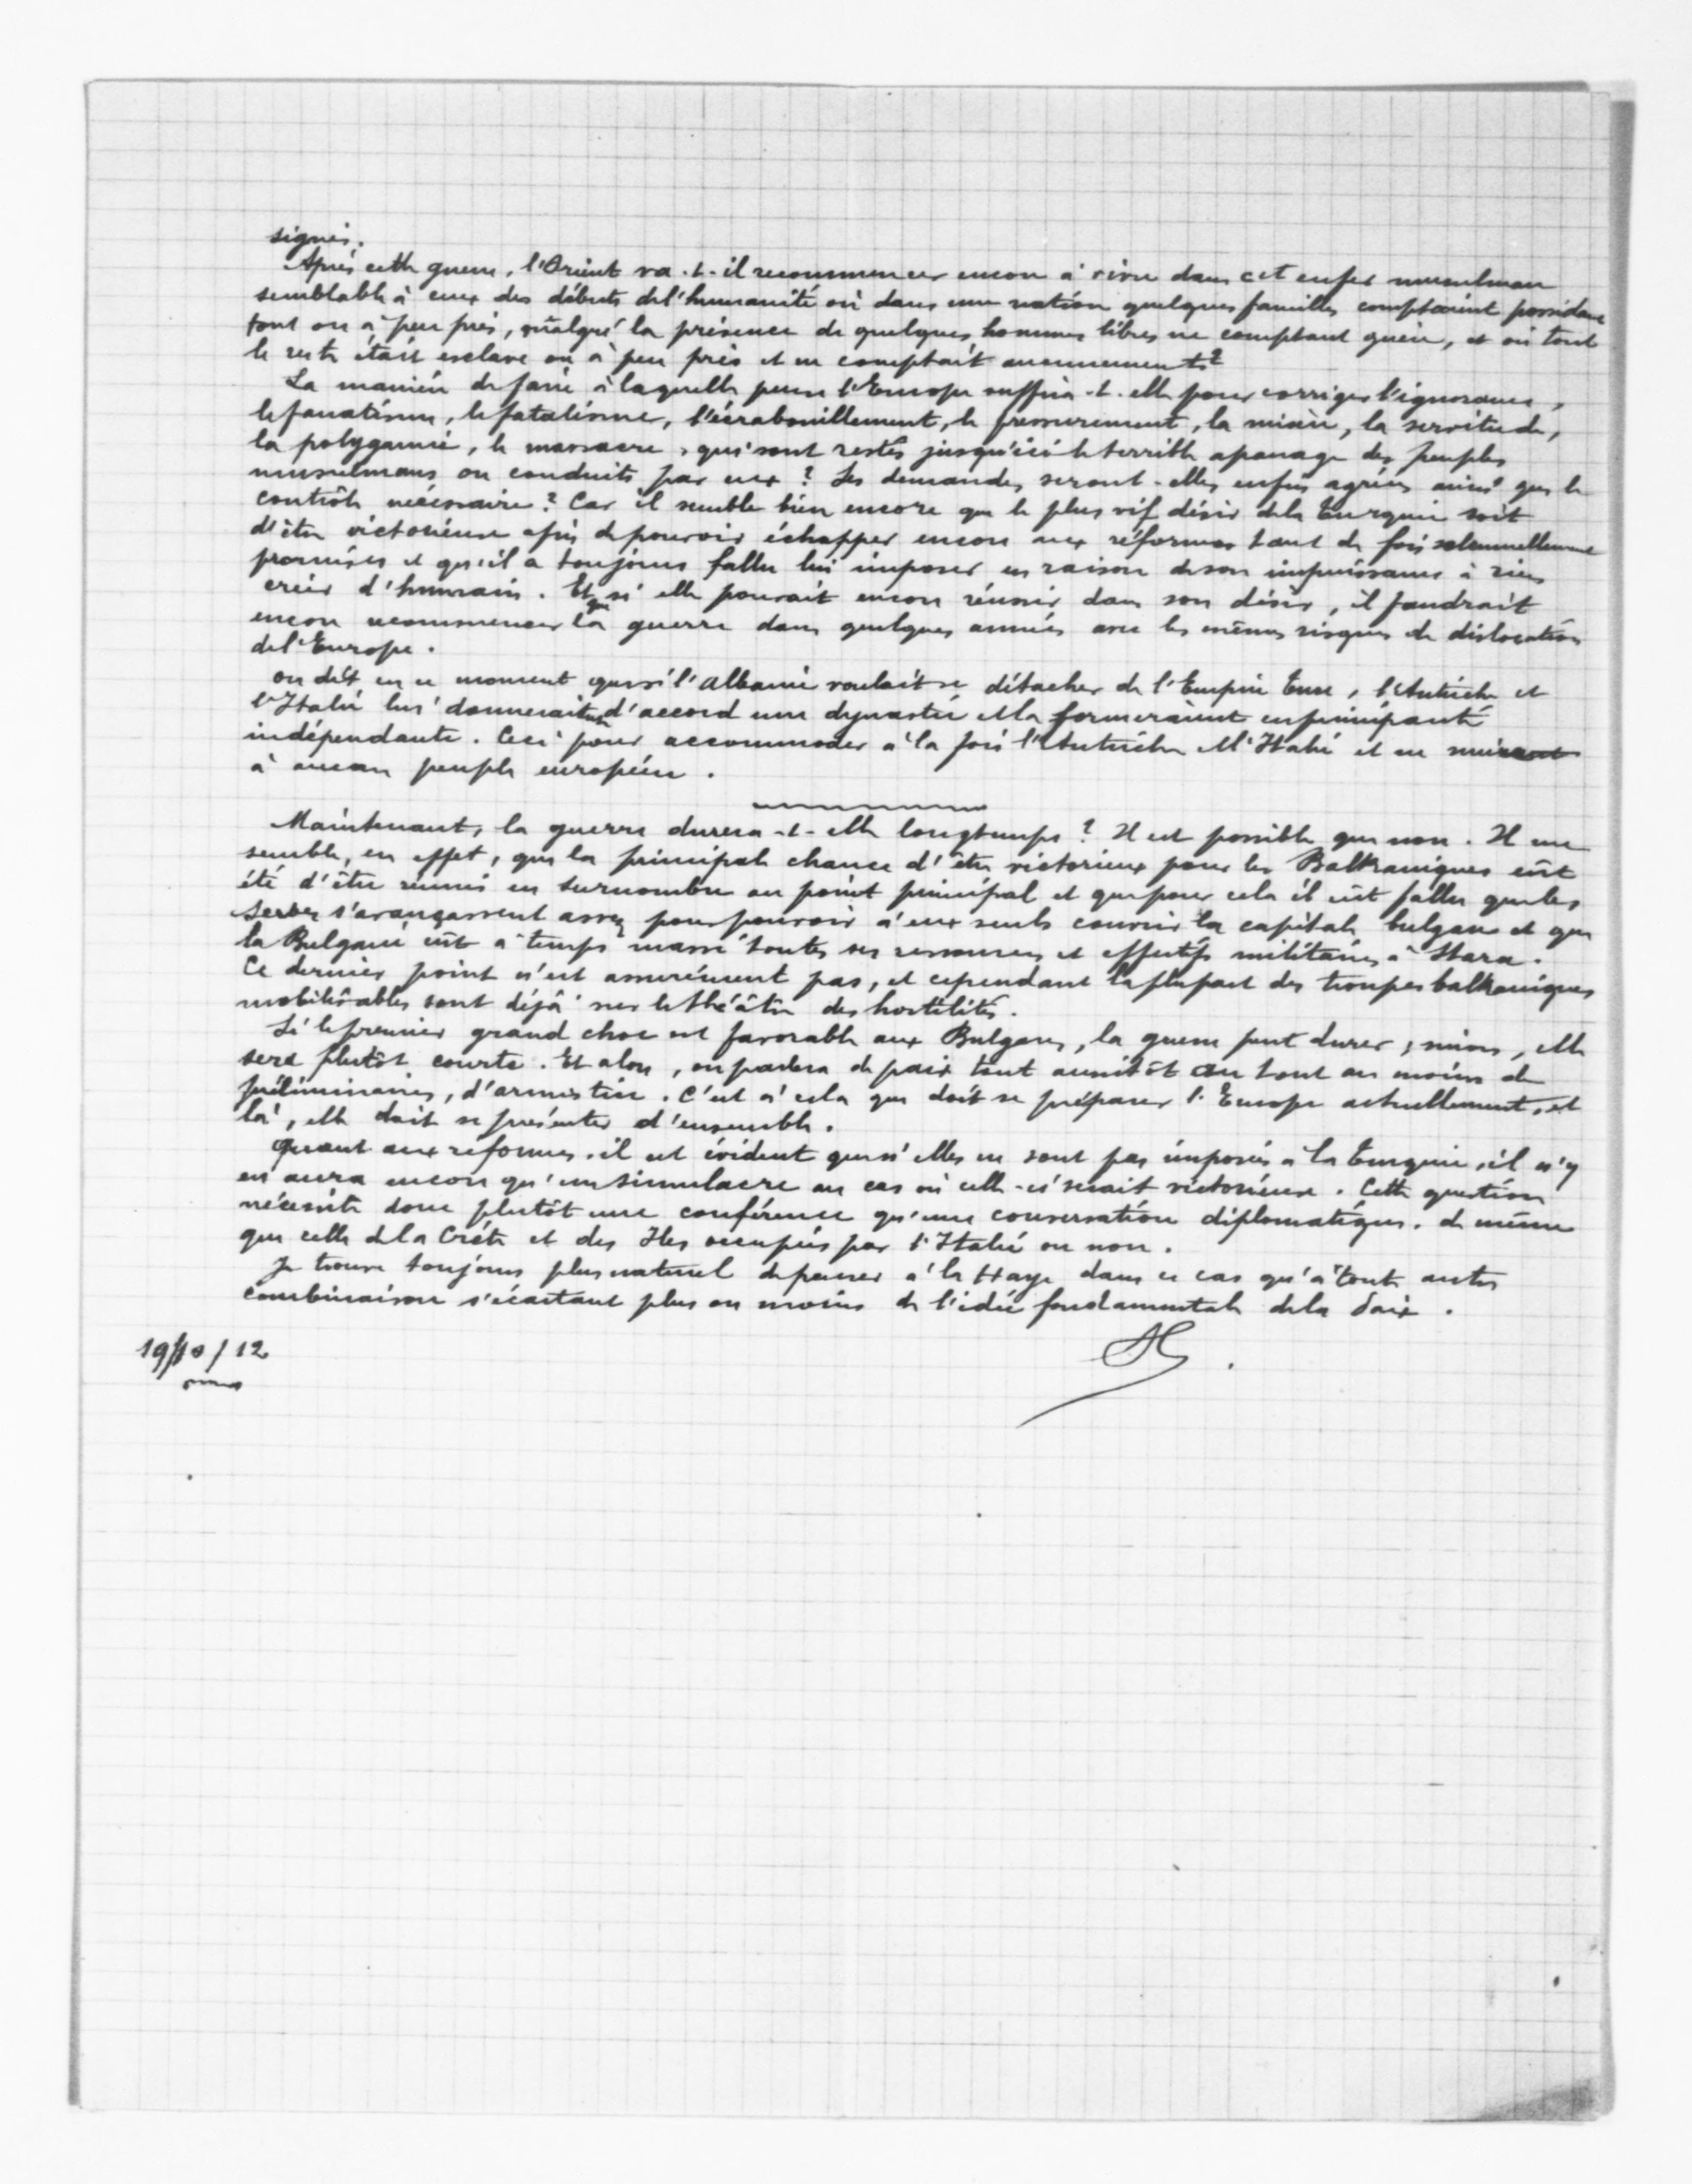 signés.
Après cette guerre, l'Orient va-t-il recommencer encore à vivre dans cet enfer musulman
semblable à ceux des débuts de l'humanité où dans une nation quelques familles comptaient possédant
tout ou à peu près, malgré la présence de quelques hommes libres ne comptant guère, et où tout
le reste était esclave ou à peu près et ne comptait aucunement ?
La manière de faire à laquelle pense l'Europe suffira-t-elle pour corriger l'ignorance,
le fanatisme, le fatalisme, l'écrabouillement, le pressurement, la misère, la servitude,
la polygamie, le massacre, qui sont restés jusqu'ici le terrible apanage des peuples
musulmans ou conduits par eux ? Les demandes seront-elles enfin agréées ainsi que le
contrôle nécessaire ? Car il semble bien encore que le plus vif désir de la Turquie soit
d'être victorieuse afin de pouvoir échapper encore aux réformes tant de fois solennellement
promises et qu'il a toujours fallu lui imposer en raison de son impuissance à rien
créer d'humain. Et que si elle pouvait encore réussir dans son désir, il faudrait
encore recommencer la guerre dans quelques années avec les mêmes risques de dislocation
de l'Europe.
On dit en ce moment que si l'Albanie voulait se détacher de l'Empire Turc, l'Autriche et
l'Italie lui donneraient d'accord une dynastie et la formeraient en principauté
indépendante. Ceci pour accommoder à la fois l'Autriche et l'Italie et ne nuire
à aucun peuple européen.
Maintenant, la guerre durera-t-elle longtemps ? Il est possible que non. Il me
semble, en effet, que la principale chance d'être victorieux pour les Balkaniques eût
été d'être réunis en surnombre au point principal et que pour cela il eût fallu que les
Serbes s'avançassent assez pour pouvoir à eux seuls couvrir la capitale bulgare et que
la Bulgarie eût à temps massé toutes ses ressources et effectifs militaires à Stara.
Ce dernier point n'est assurément pas, et cependant la plupart des troupes balkaniques
mobilisables sont déjà sur le théâtre des hostilités.
Si le premier grand choc est favorable aux Bulgares, la guerre peut durer ; sinon, elle
sera plutôt courte. Et alors, on parlera de paix tout aussitôt ou tout au moins de
préliminaires, d'armistice. C'est à cela que doit se préparer l'Europe actuellement, et
là, elle doit se présenter d'ensemble.
Quant aux réformes, il est évident que si elles ne sont pas imposées à la Turquie, il n'y
en aura encore qu'un simulacre au cas où celle-ci serait victorieuse. Cette question
nécessite donc plutôt une conférence qu'une conversation diplomatique. de même
que celle de la Crète et des Iles occupées par l'Italie ou non.
Je trouve toujours plus naturel de penser à la Haye dans ce cas qu'à toute autre
combinaison s'écartant plus ou moins de l'idée fondamentale de la Paix.
19/10/12